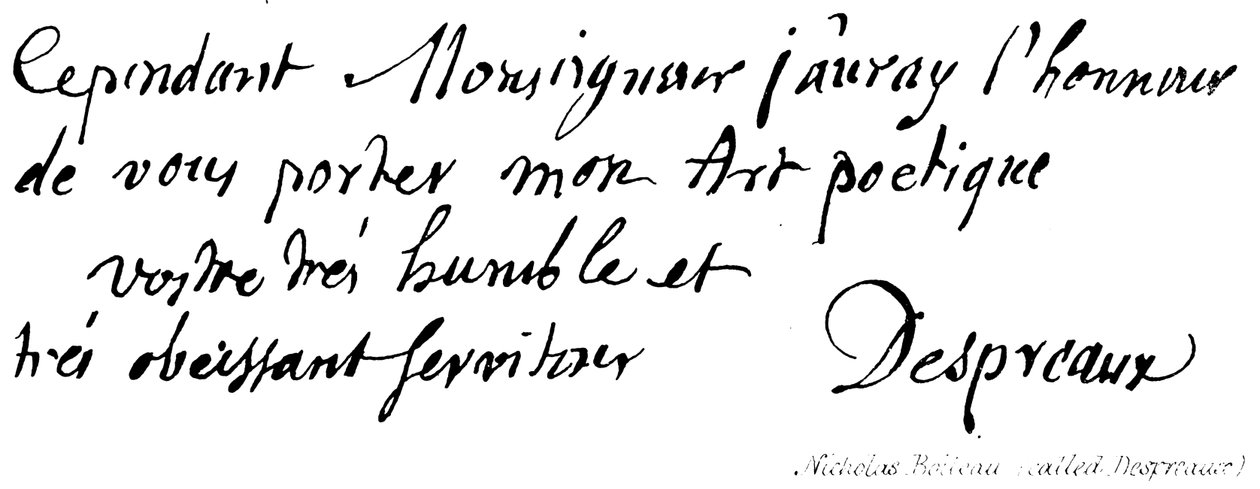 Cependant Monseigneur j'auray l'honneur
de vous porter mon Art poetique
vostre trés humble et
trés obeissant serviteur
Despreaux
Nicholas Boileau (called Despreaux)